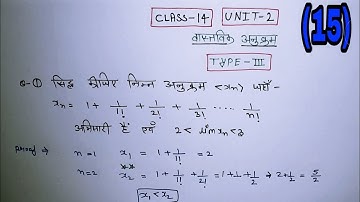 CLASS-14 UNIT-2
(15)
वास्तविक अनुक्रम
TYPE-III
Q-① सिद्ध कीजिए निम्न अनुक्रम <xn> जहाँ-
xn = 1 + 1/1! + 1/2! + 1/3! ..... 1/n!
अभिसारी है एवं 2 < lim xn < 3
proof → n=1 x₁ = 1 + 1/1! = 2
n=2 x₂ = 1 + 1/1! + 1/2! = 1+1+1/2 ⇒ 2+1/2 = 5/2
x₁ < x₂